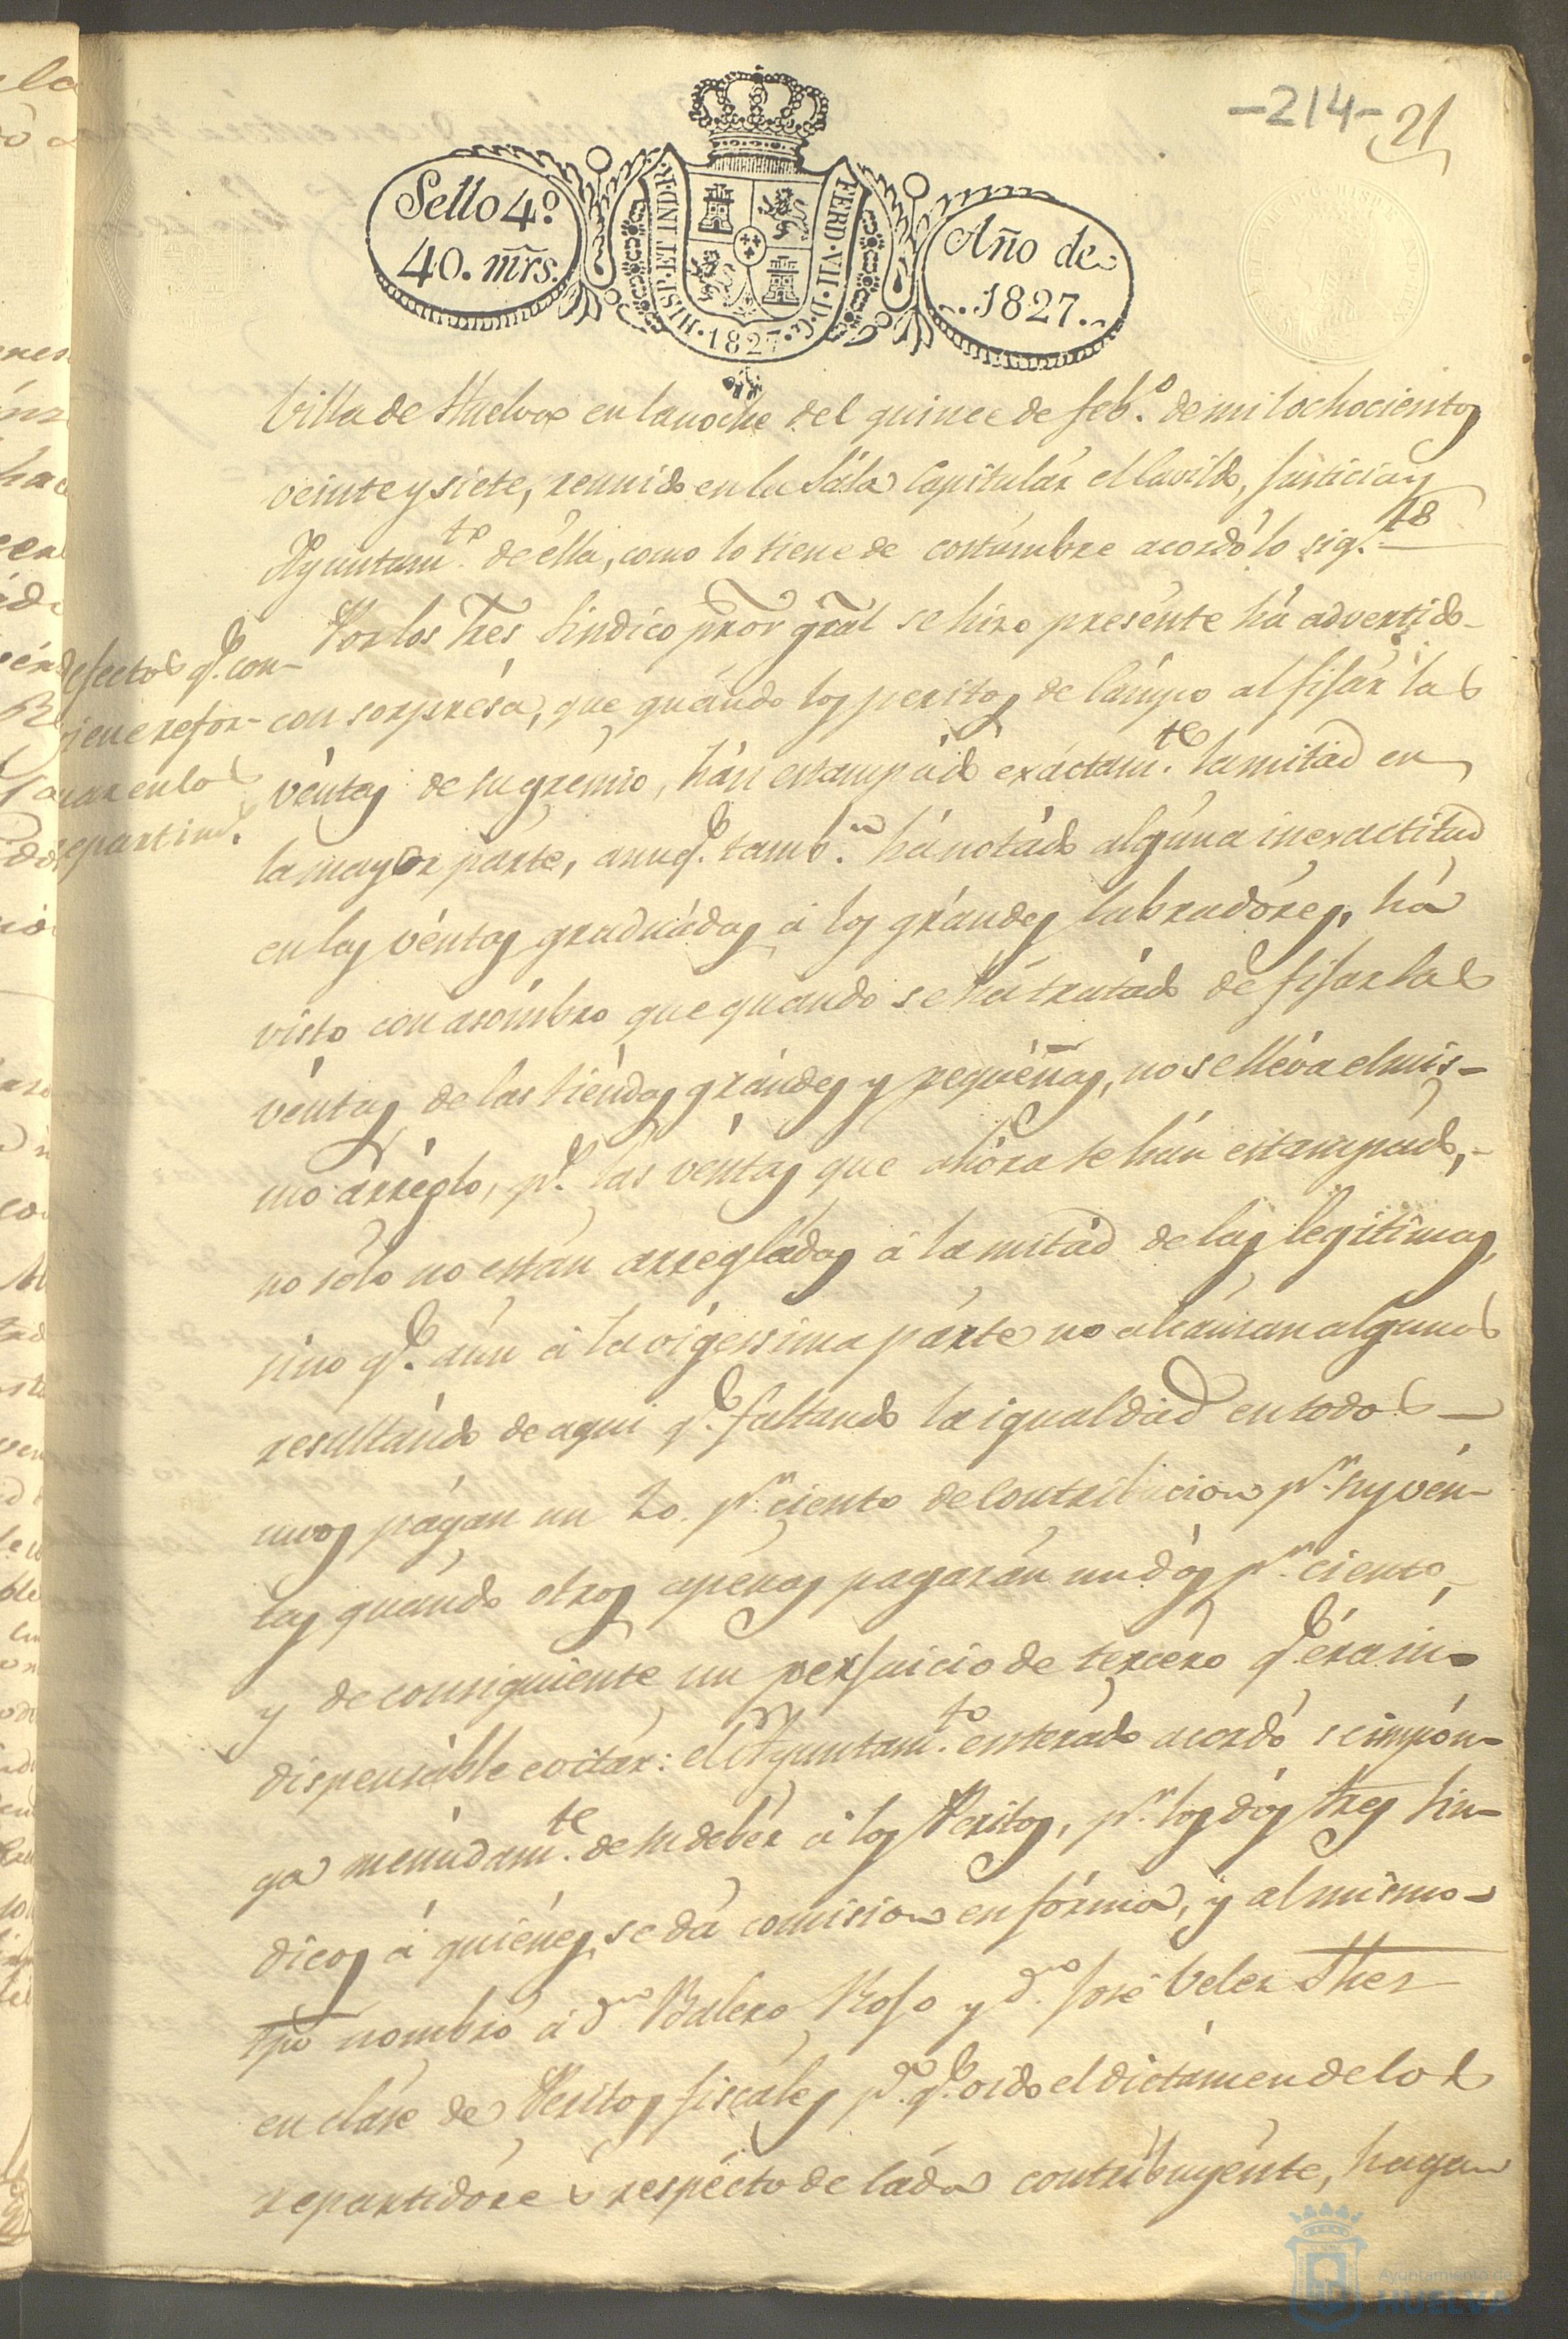 -214- 21
Sello 4º
40. mrs.
HISP. ET IND. R. FERD. VII. D. G.
1827
Año de
1827.
Villa de Huelva en la noche del quince de feb.º de mil ochocientos
veinte y siete, reunido en la Sála Capitulár el Cavildo, Justicia y
Ayuntam.to de élla, como lo tiene de costúmbre acordó lo sig.te
Por los Tres Sindico pror gral se hizo presénte há advertido
con sorprésa, que quándo los peritos de Cámpo al fijár las
véntas de su grémio, hán estampádo exáctam.te la mitad en
la mayor párte, aunq.e tamb.n há notádo algúna inexactitud
en las véntas graduádas á los grándes labradóres, há
visto con asómbro que quándo se há tratádo de fijar las
véntas de las tiéndas grándes y pequéñas, no se lléva el mis-
mo arréglo, p.s las véntas que ahóra se hán estampádo,
no sólo no están arregládas á la mitad de las legitimas,
sino q.e aún á la vigessima párte no alcánsan algunas
resultándo de aqui q.e faltando la igualdad en todos
unos págan un 20. p.r ciento de Contribucion p.r sus vén-
tas quándo otros apénas pagarán un dós p.r ciento,
y de consiguiente un perjuicio de tercéro q.e éra in-
dispensáble evitár: el Ayuntam.to enterádo acordó se impón-
ga menúdam.te de su debér á los Peritos, p.r los dós tres Sin-
dicos á quiénes se dá comision en fórma, y al mismo
tpo nombró á d.n Balero Roso y d.n José Velez Sher
en cláse de Peritos fiscáles p.a q.e oido el dictámen de los
repartidóres respécto de cáda contribuyénte, hagan
defectos q.e con-
viene refor-
mar en los
repartim.
Ayuntamiento de
HUELVA